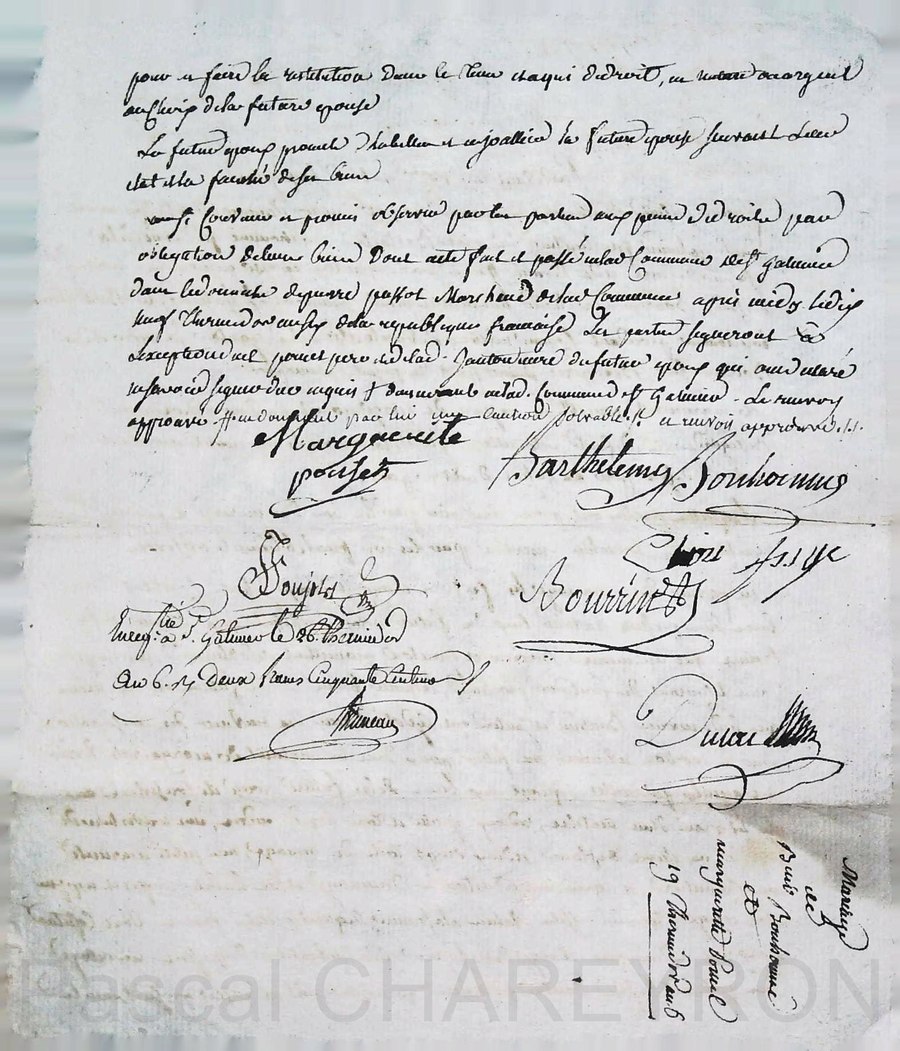 pour en faire la restitution dans le tems et a qui de droit, en nature ou argent
au choix de la future epouse
La future epoux promet d'habiller et enjoailler la future epouse suivant leur
etat et la faculté de ses biens
ainsi convenu et promis observer par les parties aux peines de droits par
obligation de leurs biens Dont acte fait et passé en lad Commune de St galmier
dans le domicile de pierre passot Marchand de lad Commune après midy le dix
neuf Thermidor an six de la republique française Les parties signeront à
l'exception du et pere de lad. du futur epoux qui ont declaré
ne savoir signer de ce enquis + demeurants en lad. Commune St Galmier. Le renvoy
approuvé + en donnant par lui une caution solvable./. renvoi approuvé ./.
Marguerite
ponset
Barthelemy Bonhomme
Bourrin
Enreg.tré à S.t Galmier le 26 thermidor
an 6. R. Deux francs Cinquante Centimes
Bruneau
Mariage
de
Bmi Bonhomme
et
marguerite
19 Thermidor an 6
Pascal CHAREYRON